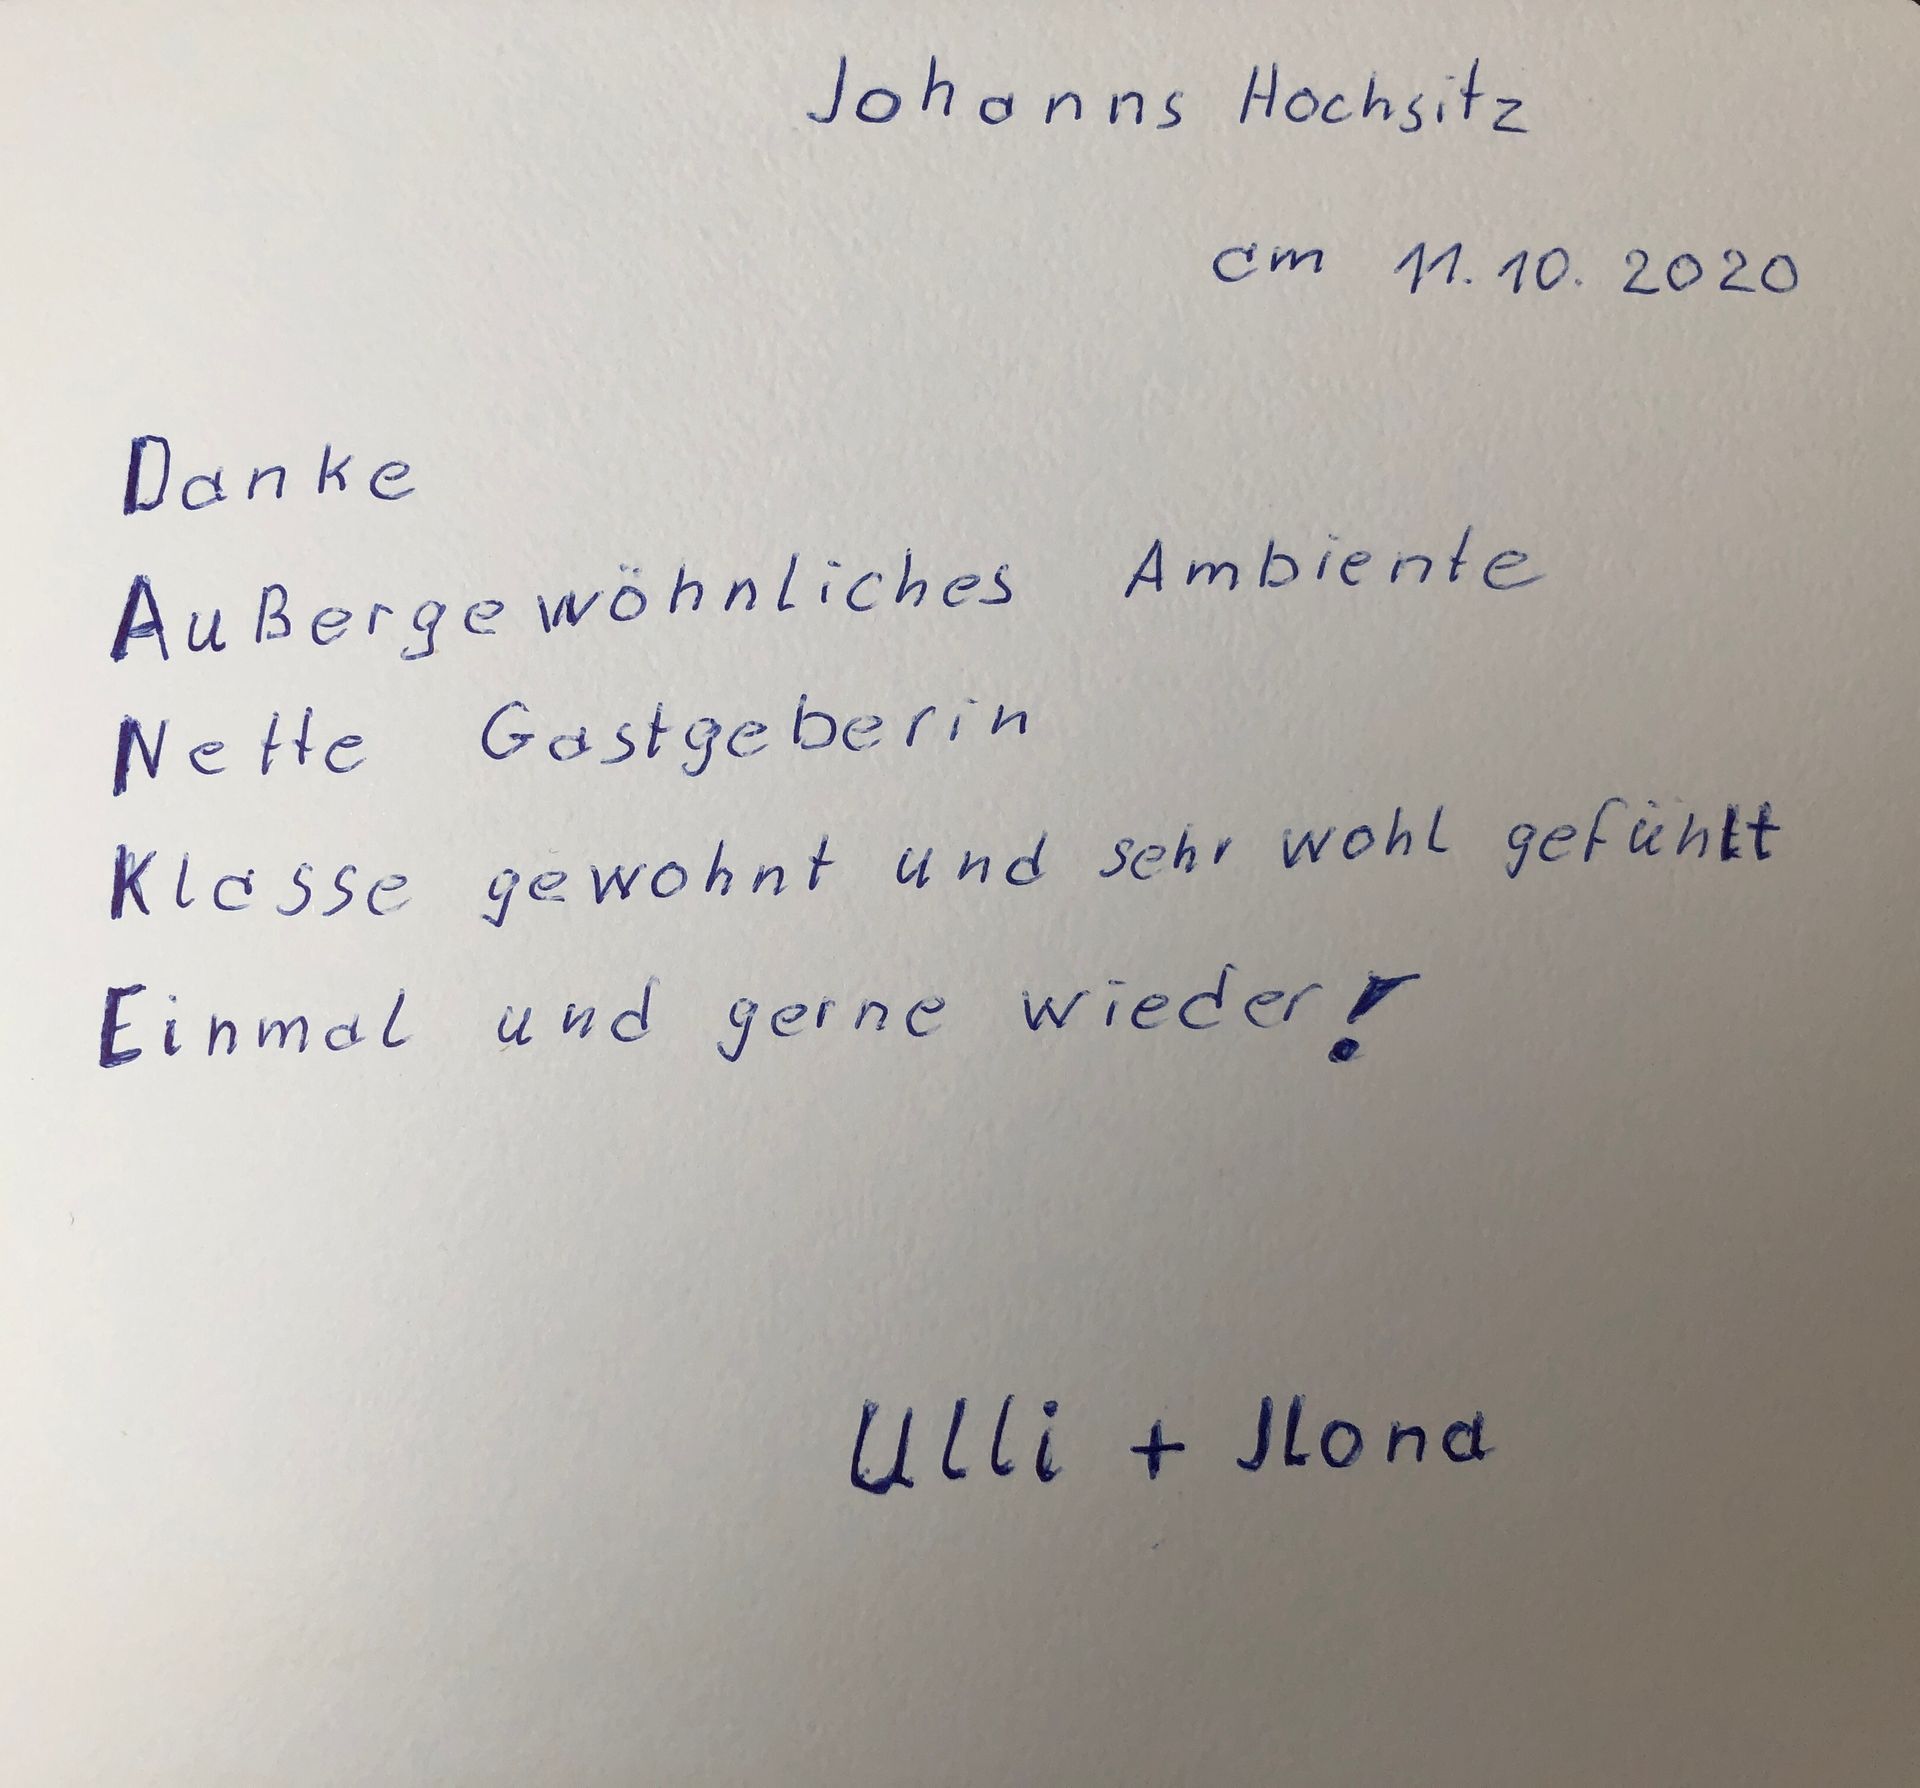 Johanns Hochsitz
am 11.10.2020
Danke
Außergewöhnliches Ambiente
Nette Gastgeberin
Klasse gewohnt und sehr wohl gefühlt
Einmal und gerne wieder!
Ulli + Ilona